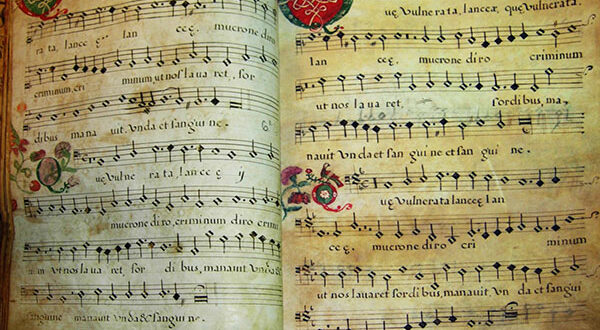 rata, lanceę. lan ceę. mucrone diro
criminum, cri minum, ut nos laua ret, sor
dibus mana uit. Vnda et sanguine.
uę vulne rata, lanceę ij
mucrone diro, criminum diro crimi
num ut nos laua ret sor di bus, manauit Vnda &
sanguine manauit Vnda & sanguine.
uę Vulnerata, lanceæ, quę Vulnerata.
lan ceę. mucrone diro criminum
ut nos laua ret, sordibus, ma,
nauit Vnda et san gui ne et san gui ne.
uę Vulnerata lanceę lan
ceę. mucrone diro cri minum
ut nos lauaret sordibus, manauit Vn da et sangui ne.